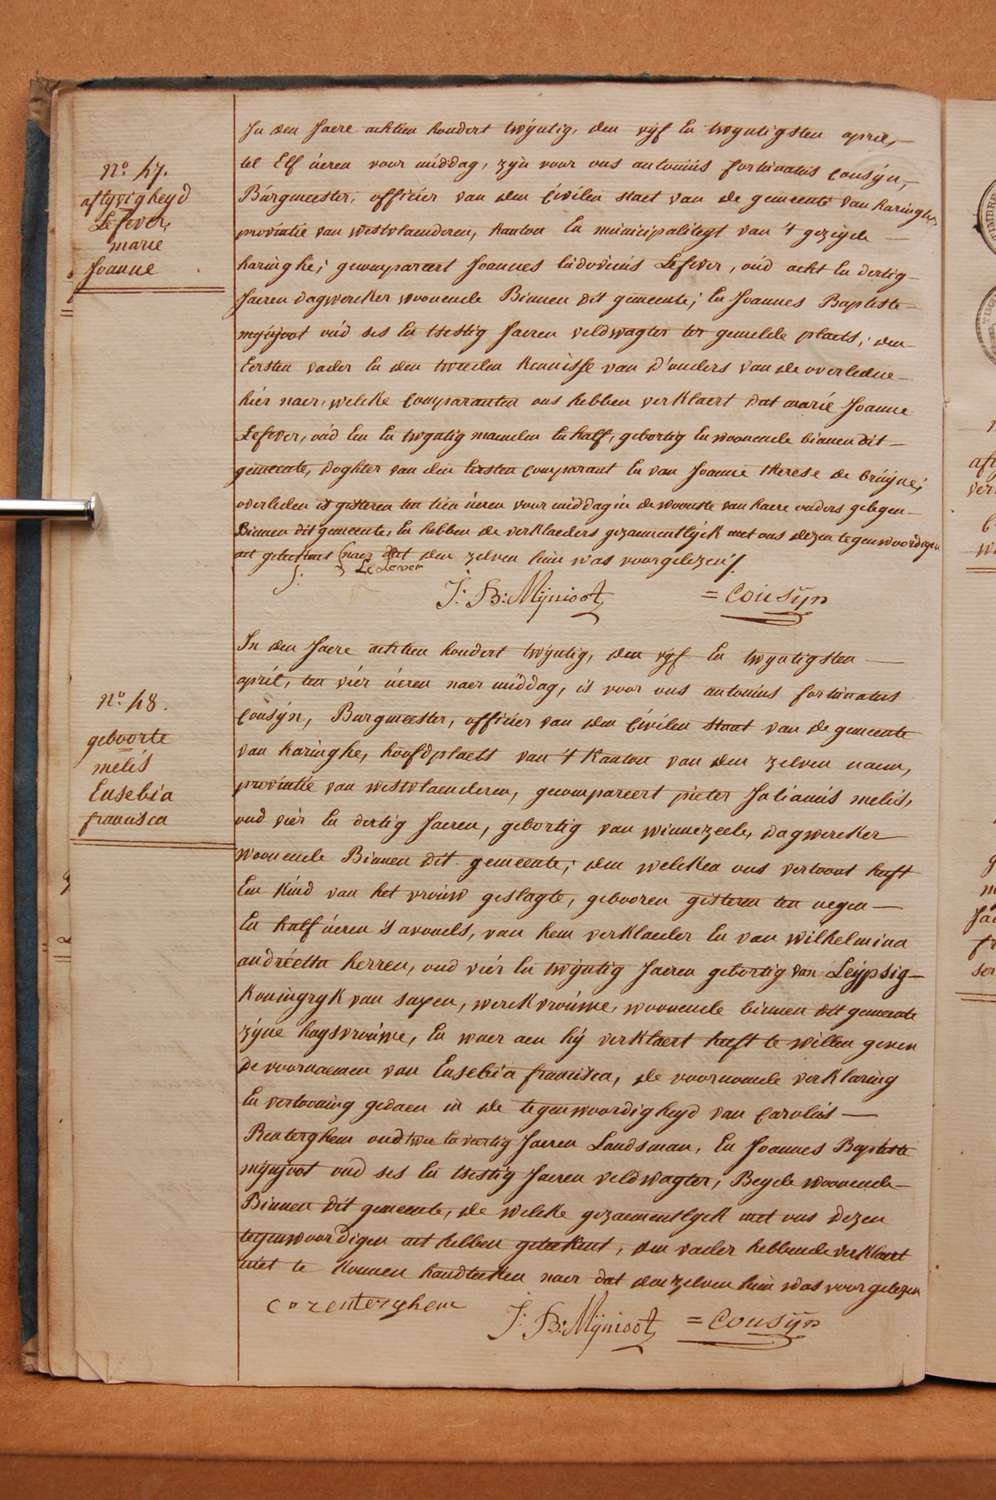 N.º 47.
aflyvigheyd
Lefever,
marie
Joanne
In den Jaere achtien hondert twÿntig, den vÿf En twyntigsten april,
tel Elf úeren voor middag, zÿn voor ons antoniús fortúnatús Coúsÿn,
Búrgmeester, officier van den Civilen staet van de gemeente van haringhe,
provintie van westvlaenderen, kanton En municipaliteyt van 't gezeyde
haringhe; gecompareert Joannes lúdovicús Lefever, oúd acht En dertig
Jaeren dagwercker woonende Binnen dit gemeente; En Joannes Baptiste
mÿnjoot oúd ses En tsestig Jaeren veldwagter ter gemelde plaets; den
Eersten vader En den tweeden kennisse van d'ouders van de overledene
hier naer, welcke Comparanten ons hebben verklaert dat marie Joanne
Lefever, oúd Een En twyntig maenden En half, gebortig En woonende binnen dit
gemeente, doghter van den Eersten Comparant En van Joanne therese de brúyne;
overleden is gisteren ten tien úeren voor middag in de wooste van haere ouders gelegen
Binnen dit gemeente, En hebben de verklaeders gezamentlyck met ons dezen tegenwoordigen
act geteekent naer dat den zelven hun was voorgelezen
L: Lefever
J: B: Mÿnioot = Cousÿn
N.º 48.
geboorte
melis
Eusebia
francisca
In den Jaere achtien hondert twÿntig, den vÿf En twyntigsten
april, ten vier úeren naer middag, is voor ons antoniús fortúnatús
Coúsÿn, Burgmeester, officier van den Civilen staet van de gemeente
van haringhe, hoofdplaets van 't kanton van den zelven naem,
provintie van westvlaenderen, gecompareert pieter Julianús melis,
oud vier En dertig Jaeren, gebortig van winnezeele, dagwercker
woonende Binnen dit gemeente; den welcken ons vertoont heeft
Een kind van het vrouw geslagte, gebooren gisteren ten negen
En half úeren s'avonds, van hem verklaeder En van wilhelmina
andréetta herren, oud viér En twÿntig Jaeren gebortig van Leÿpsig
koningryk van saxen, werckvroúwe, woonende binnen dit gemeente
zÿne huysvroúwe, En waer aen hÿ verklaert heeft te willen geven
de voornaemen van Eusebia francisca, de voornoemde verklaring
En vertooning gedaen in de tegenwoordigheyd van Carolús
Renterghem oud twee En veertig Jaeren Landsman, En Joannes Baptiste
mÿnjoot oud ses En tsestig Jaeren veldwagter, Beyde woonende
Binnen dit gemeente, de welcke gezaementlyck met ons dezen
tegenwoordigen act hebben geteekent, den vader hebbende verklaert
niet te konnen handteeken naer dat den zelven hun was voorgelezen
c v renterghem J: B: Mÿnioot = Cousÿn